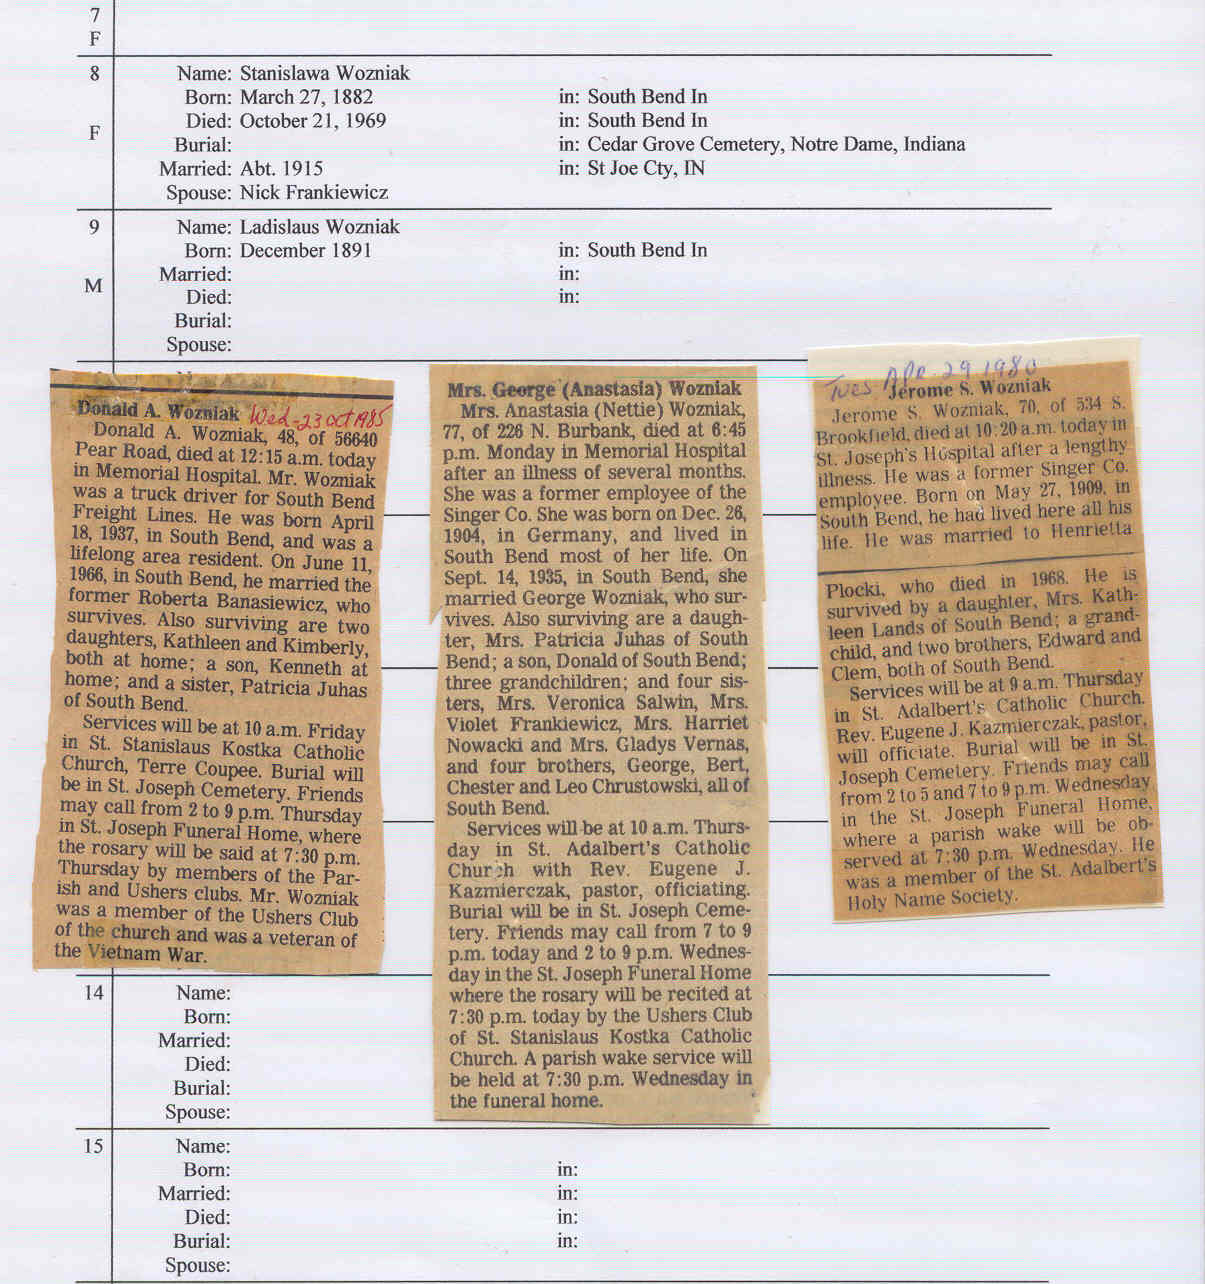 7
F
8
F
Name: Stanislawa Wozniak
Born: March 27, 1882 in: South Bend In
Died: October 21, 1969 in: South Bend In
Burial: in: Cedar Grove Cemetery, Notre Dame, Indiana
Married: Abt. 1915 in: St Joe Cty, IN
Spouse: Nick Frankiewicz
9
M
Name: Ladislaus Wozniak
Born: December 1891 in: South Bend In
Married: in:
Died: in:
Burial:
Spouse:
Donald A. Wozniak Wed-23 oct 1985
Donald A. Wozniak, 48, of 56640
Pear Road, died at 12:15 a.m. today
in Memorial Hospital. Mr. Wozniak
was a truck driver for South Bend
Freight Lines. He was born April
18, 1937, in South Bend, and was a
lifelong area resident. On June 11,
1966, in South Bend, he married the
former Roberta Banasiewicz, who
survives. Also surviving are two
daughters, Kathleen and Kimberly,
both at home; a son, Kenneth at
home; and a sister, Patricia Juhas
of South Bend.
Services will be at 10 a.m. Friday
in St. Stanislaus Kostka Catholic
Church, Terre Coupee. Burial will
be in St. Joseph Cemetery. Friends
may call from 2 to 9 p.m. Thursday
in St. Joseph Funeral Home, where
the rosary will be said at 7:30 p.m.
Thursday by members of the Par-
ish and Ushers clubs. Mr. Wozniak
was a member of the Ushers Club
of the church and was a veteran of
the Vietnam War.
Mrs. George (Anastasia) Wozniak
Mrs. Anastasia (Nettie) Wozniak,
77, of 226 N. Burbank, died at 6:45
p.m. Monday in Memorial Hospital
after an illness of several months.
She was a former employee of the
Singer Co. She was born on Dec. 26,
1904, in Germany, and lived in
South Bend most of her life. On
Sept. 14, 1935, in South Bend, she
married George Wozniak, who sur-
vives. Also surviving are a daugh-
ter, Mrs. Patricia Juhas of South
Bend; a son, Donald of South Bend;
three grandchildren; and four sis-
ters, Mrs. Veronica Salwin, Mrs.
Violet Frankiewicz, Mrs. Harriet
Nowacki and Mrs. Gladys Vernas,
and four brothers, George, Bert,
Chester and Leo Chrustowski, all of
South Bend.
Services will be at 10 a.m. Thurs-
day in St. Adalbert's Catholic
Church with Rev. Eugene J.
Kazmierczak, pastor, officiating.
Burial will be in St. Joseph Ceme-
tery. Friends may call from 7 to 9
p.m. today and 2 to 9 p.m. Wednes-
day in the St. Joseph Funeral Home
where the rosary will be recited at
7:30 p.m. today by the Ushers Club
of St. Stanislaus Kostka Catholic
Church. A parish wake service will
be held at 7:30 p.m. Wednesday in
the funeral home.
Tues Apr-29 1980
Jerome S. Wozniak
Jerome S. Wozniak, 70, of 534 S.
Brookfield, died at 10:20 a.m. today in
St. Joseph's Hospital after a lengthy
illness. He was a former Singer Co.
employee. Born on May 27, 1909, in
South Bend, he had lived here all his
life. He was married to Henrietta
Plocki, who died in 1968. He is
survived by a daughter, Mrs. Kath-
leen Lands of South Bend; a grand-
child, and two brothers, Edward and
Clem, both of South Bend.
Services will be at 9 a.m. Thursday
in St. Adalbert's Catholic Church.
Rev. Eugene J. Kazmierczak, pastor,
will officiate. Burial will be in St.
Joseph Cemetery. Friends may call
from 2 to 5 and 7 to 9 p.m. Wednesday
in the St. Joseph Funeral Home,
where a parish wake will be ob-
served at 7:30 p.m. Wednesday. He
was a member of the St. Adalbert's
Holy Name Society.
14
Name:
Born:
Married:
Died:
Burial:
Spouse:
15
Name:
Born: in:
Married: in:
Died: in:
Burial: in:
Spouse: